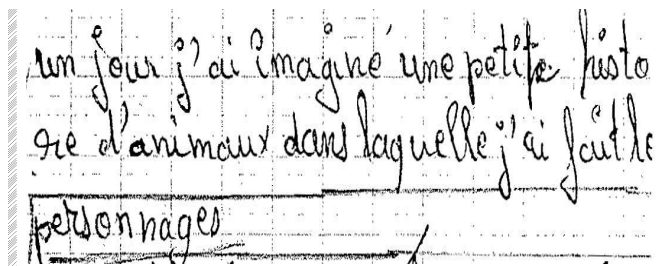 un jour j'ai imaginé une petite histo
re d'animaux dans laquelle j'ai fait le
personnages